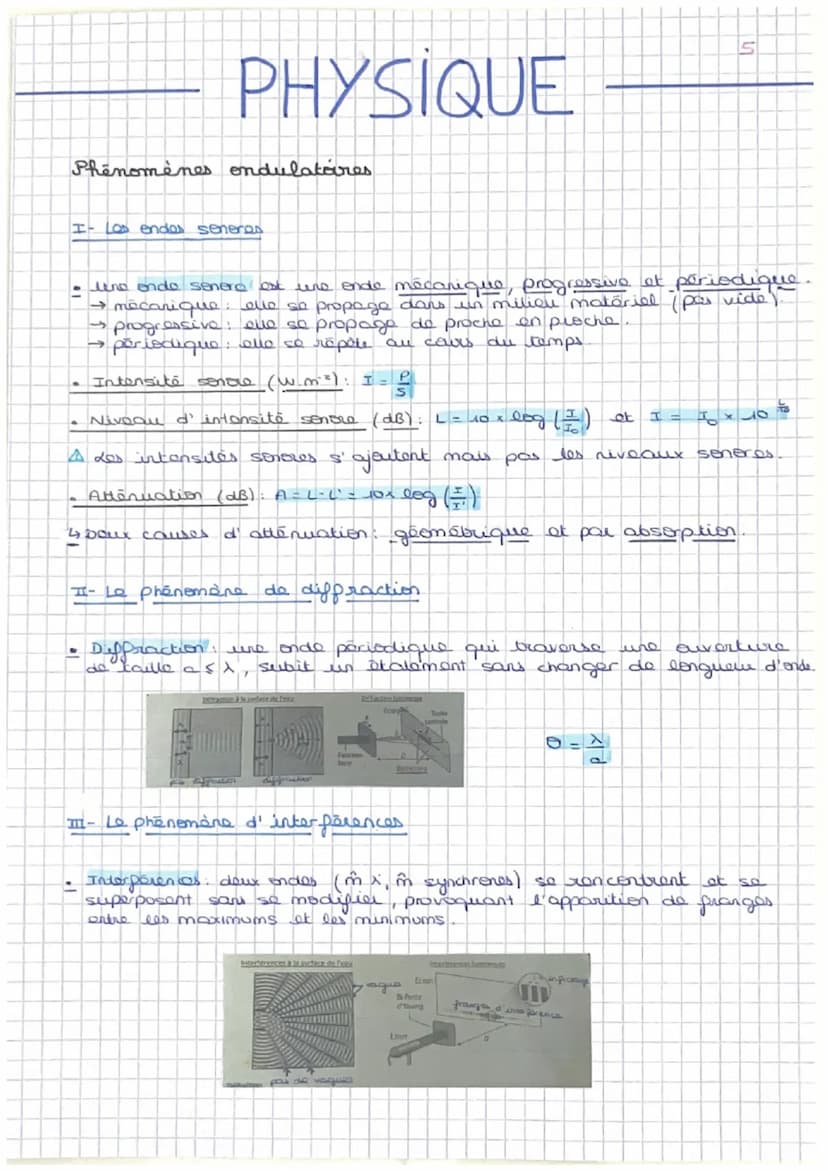 5
PHYSIQUE
Phénomènes ondulatoires
I- Les ondes sonores
• Une onde sonore est une onde mécanique, progressive et périodique.
→ mécanique : elle se propage dans un milieu matériel (pas vide).
→ progressive : elle se propage de proche en proche.
→ périodique : elle se répète au cours du temps.
• Intensité sonore (W.m⁻²) : I = P/S
• Niveau d'intensité sonore (dB) : L = 10 x log (I/I₀) et I = I₀ x 10^(L/10)
⚠ Les intensités sonores s'ajoutent mais pas les niveaux sonores.
• Atténuation (dB) : A = L-L' = 10x log (I/I')
↳ Deux causes d'atténuation : géométrique et par absorption.
II- Le phénomène de diffraction
• Diffraction : une onde périodique qui traverse une ouverture
de taille a ≤ λ, subit un étalement sans changer de longueur d'onde.
Diffraction à la surface de l'eau
Diffraction lumineuse
Ecran
Tache centrale
Faisceau laser
pas diffraction
diffraction
D
θ = λ/a
III- Le phénomène d'interférences
• Interférences : deux ondes (m̂ λ, m̂ synchrones) se rencontrent et se
superposent sans se modifier, provoquant l'apparition de franges
entre les maximums et les minimums.
Interférences à la surface de l'eau
Interférences lumineuses
vague
Ecran
interfrange
Bi-fente d'Young
franges d'interférence
Laser
D
pas de vagues